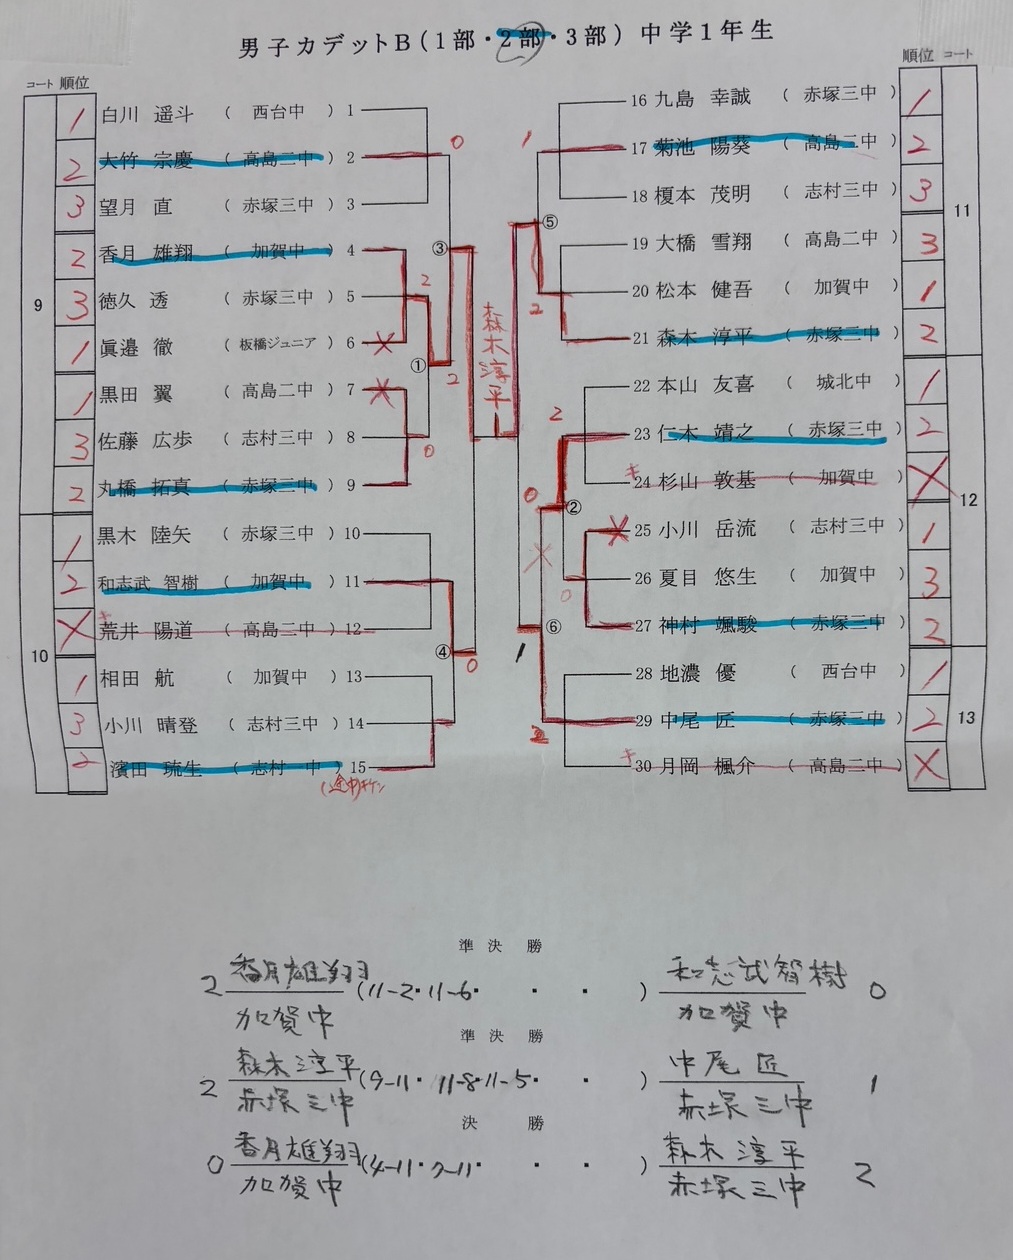 男子カデットB（1部・2部・3部）中学1年生
コート 順位
順位 コート
9
1 白川 遥斗 （ 西台中 ） 1
2 大竹 宗慶 （ 高島二中 ） 2
3 望月 直 （ 赤塚三中 ） 3
2 香月 雄翔 （ 加賀中 ） 4
3 徳久 透 （ 赤塚三中 ） 5
1 眞邉 徹 （ 板橋ジュニア ） 6
1 黒田 翼 （ 高島二中 ） 7
3 佐藤 広歩 （ 志村三中 ） 8
2 丸橋 拓真 （ 赤塚三中 ） 9
10
1 黒木 陸矢 （ 赤塚三中 ） 10
2 和志武 智樹 （ 加賀中 ） 11
キ 荒井 陽道 （ 高島二中 ） 12
1 相田 航 （ 加賀中 ） 13
3 小川 晴登 （ 志村三中 ） 14
2 濱田 琉生 （ 志村一中 ） 15
（途中キケン
0
③
2
①
2
0
④
0
森木淳平
1
⑤
2
2
0
②
0
⑥
1
2
16 九島 幸誠 （ 赤塚三中 ） 1
17 菊池 陽葵 （ 高島二中 ） 2
18 榎本 茂明 （ 志村三中 ） 3
11
19 大橋 雪翔 （ 高島二中 ） 3
20 松本 健吾 （ 加賀中 ） 1
21 森木 淳平 （ 赤塚三中 ） 2
22 本山 友喜 （ 城北中 ） 1
23 仁木 靖之 （ 赤塚三中 ） 2
キ 24 杉山 敦基 （ 加賀中 ）
12
25 小川 岳流 （ 志村三中 ） 1
26 夏目 悠生 （ 加賀中 ） 3
27 神村 颯駿 （ 赤塚三中 ） 2
28 地濃 優 （ 西台中 ） 1
29 中尾 匠 （ 赤塚三中 ） 2
13
キ 30 月岡 楓介 （ 高島二中 ）
準 決 勝
2 香月雄翔 （11-2・11-6・ ・ ・ ） 和志武智樹 0
加賀中 加賀中
準 決 勝
2 森木淳平 （9-11・11-8・11-5・ ・ ・ ） 中尾 匠 1
赤塚三中 赤塚三中
決 勝
0 香月雄翔 （4-11・7-11・ ・ ・ ） 森木淳平 2
加賀中 赤塚三中